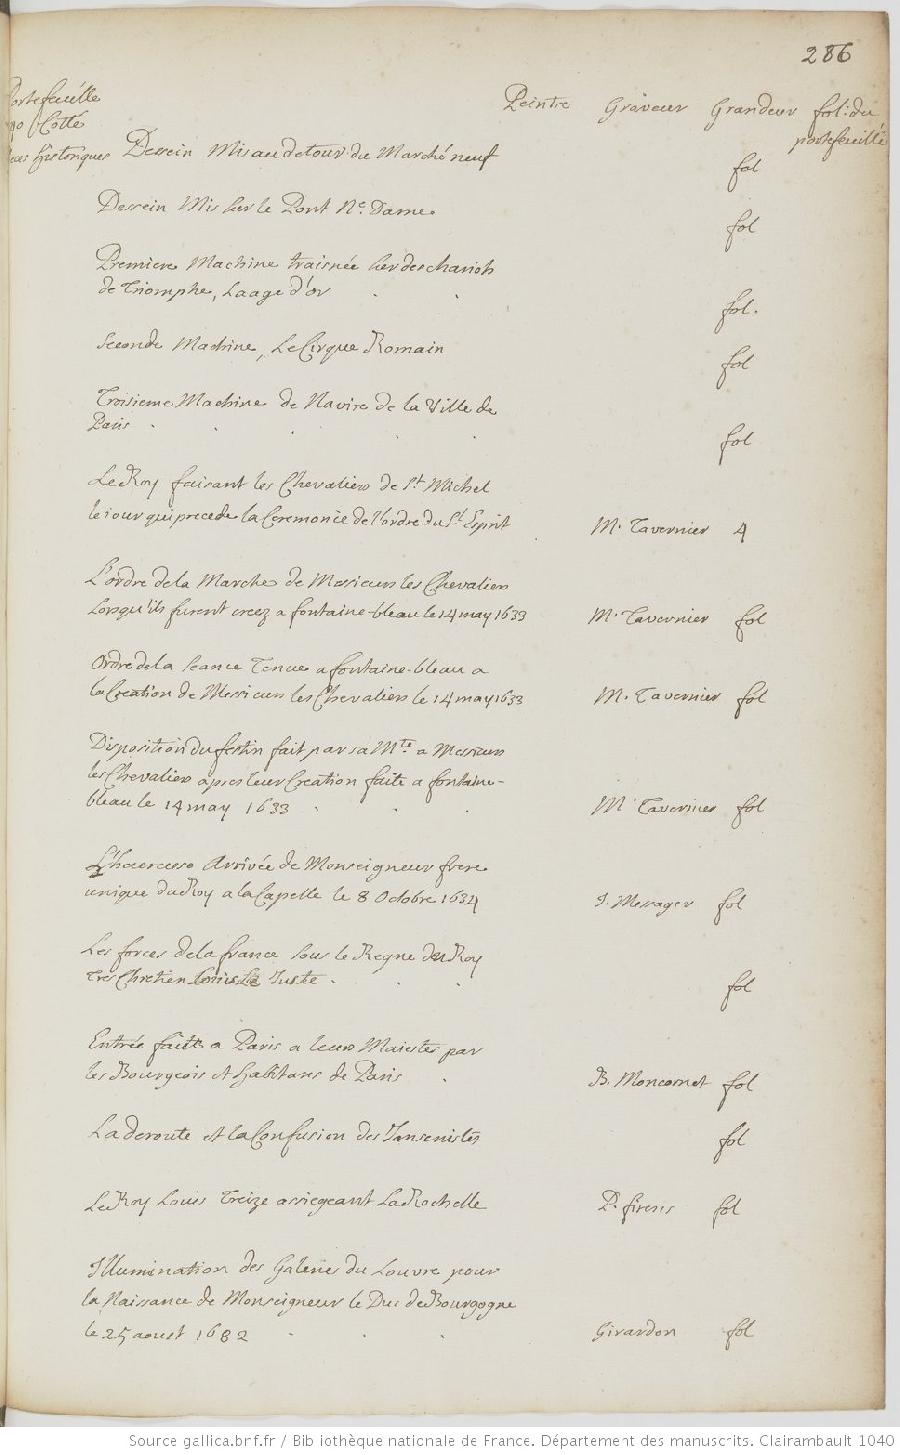 286
Portefeuille Peintre Graveur Grandeur fol: du
Cotté portefeuille
historiques Dessein Mis au detour du Marché neuf fol
Dessein Mis sur le Pont Ne. Dame. fol
Premiere Machine traisnée sur des chariots
de Triomphe, Laage d'or fol.
Seconde Machine, Le Cirque Romain fol
Troisieme Machine de Navire de la Ville de
Paris fol
Le Roy faisant les Chevaliers de St Michel
le iour qui precede la Ceremonie de l'ordre du St Esprit M. Tavernier 4
L'ordre de la Marche de Messieurs les Chevaliers
Lorsqu'ils furent creez a fontaine-bleau le 14 may 1633 M. Tavernier fol
Ordre de la Seance Tenue a fontaine-bleau a
la Creation de Messieurs les Chevaliers le 14 may 1633 M. Tavernier fol
Disposition du festin fait par sa Mté a Messieurs
les Chevaliers apres leur Creation faite a fontaine-
bleau le 14 may 1633 M Tavernier fol
L'heureuse Arrivée de Monseigneur frere
unique du Roy a la Capelle le 8 Octobre 1634 J. Messager fol
Les forces de la france sous le Regne du Roy
tres Chretien Louis Le Juste. fol
Entrée faite a Paris a leurs Maiestés par
les Bourgeois et habitans de Paris B. Moncornet fol
La deroute et la Confusion des Jansenistes fol
Le Roy Louis Treize assiegeant La Rochelle P. firens fol
Illumination des Galeries du Louvre pour
la Naissance de Monseigneur le Duc de Bourgogne
le 25 aoust 1682 Girardon fol
Source gallica.bnf.fr / Bibliothèque nationale de France. Département des manuscrits. Clairambault 1040